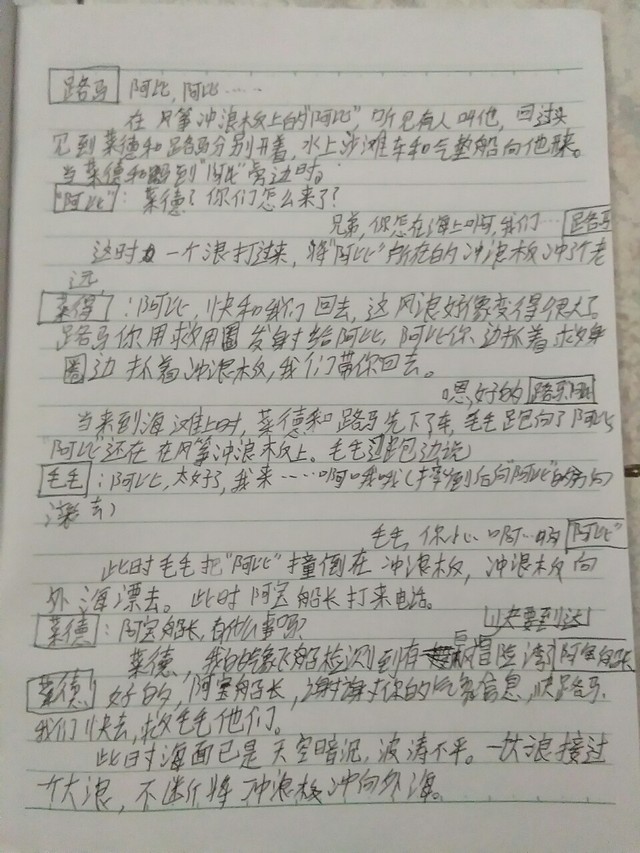 路马 阿比,阿比……
在风筝冲浪板上的"阿比",听见有人叫他,回过头
见到莱德和路马分别开着,水上沙滩车和气垫船向他驶来。
当莱德和路到"阿比"旁边时。
"阿比":莱德?你们怎么来了?
兄弟,你怎在海上啊,我们… 路马
这时 一个浪打过来,将"阿比"所在的冲浪板冲了老
远,
莱得:阿比,快和我们回去,这风浪好像变得很大了。
路马你用救用圈发射给阿比,阿比你边抓着救身
圈边抓着冲浪板,我们带你回去。
嗯,好的 路马
当来到海滩上时,莱德和路马先下了车,毛毛跑向了阿比
"阿比"还在在风筝冲浪板上。毛毛边跑边说
毛毛:阿比,太好了,我来……啊哦哦(撞倒后向"阿比"的方向
滚去)
毛毛,你小心啊…哟 "阿比"
此时毛毛把"阿比"撞倒在冲浪板,冲浪板向
外海漂去。此时阿宝船长打来电话。
莱德:阿宝船长,有什么事吗?
快要到达
莱德,我的飞船检测到有 冒险湾了 阿宝船长
莱德 好的,阿宝船长,谢谢你的气象信息,快路马,
我们快去,救毛毛他们。
此时海面已是天空暗沉,波涛不平。一次浪接过
个大浪,不断将冲浪板冲向外海。